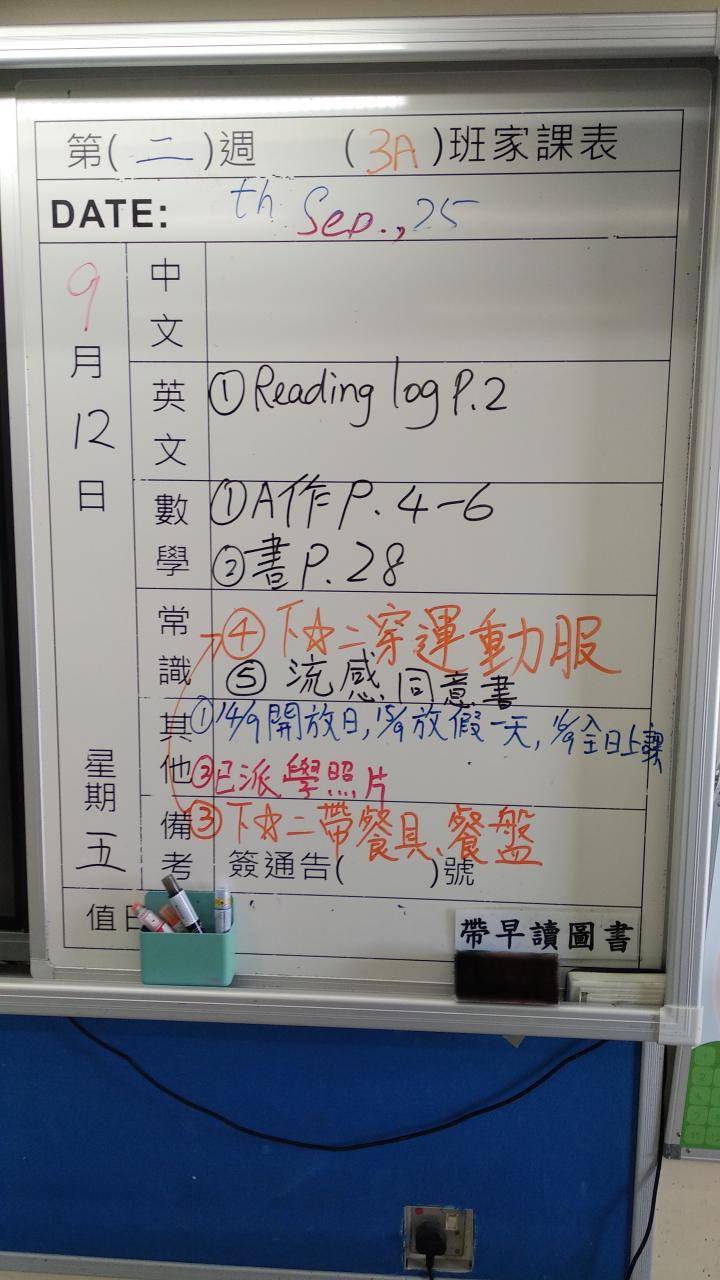 第(二)週 (3A)班家課表
DATE: th Sep., 25
9月12日
星期五
中文
英文 ①Reading log P.2
數學 ①A作P.4-6
②書P.28
常識 ④下☆二穿運動服
⑤流感同意書
其他 ①14/9開放日,15/9放假一天,16/9全日上課
已派學照片
備考 ③下☆二帶餐具、餐盤
簽通告( )號
值日
帶早讀圖書